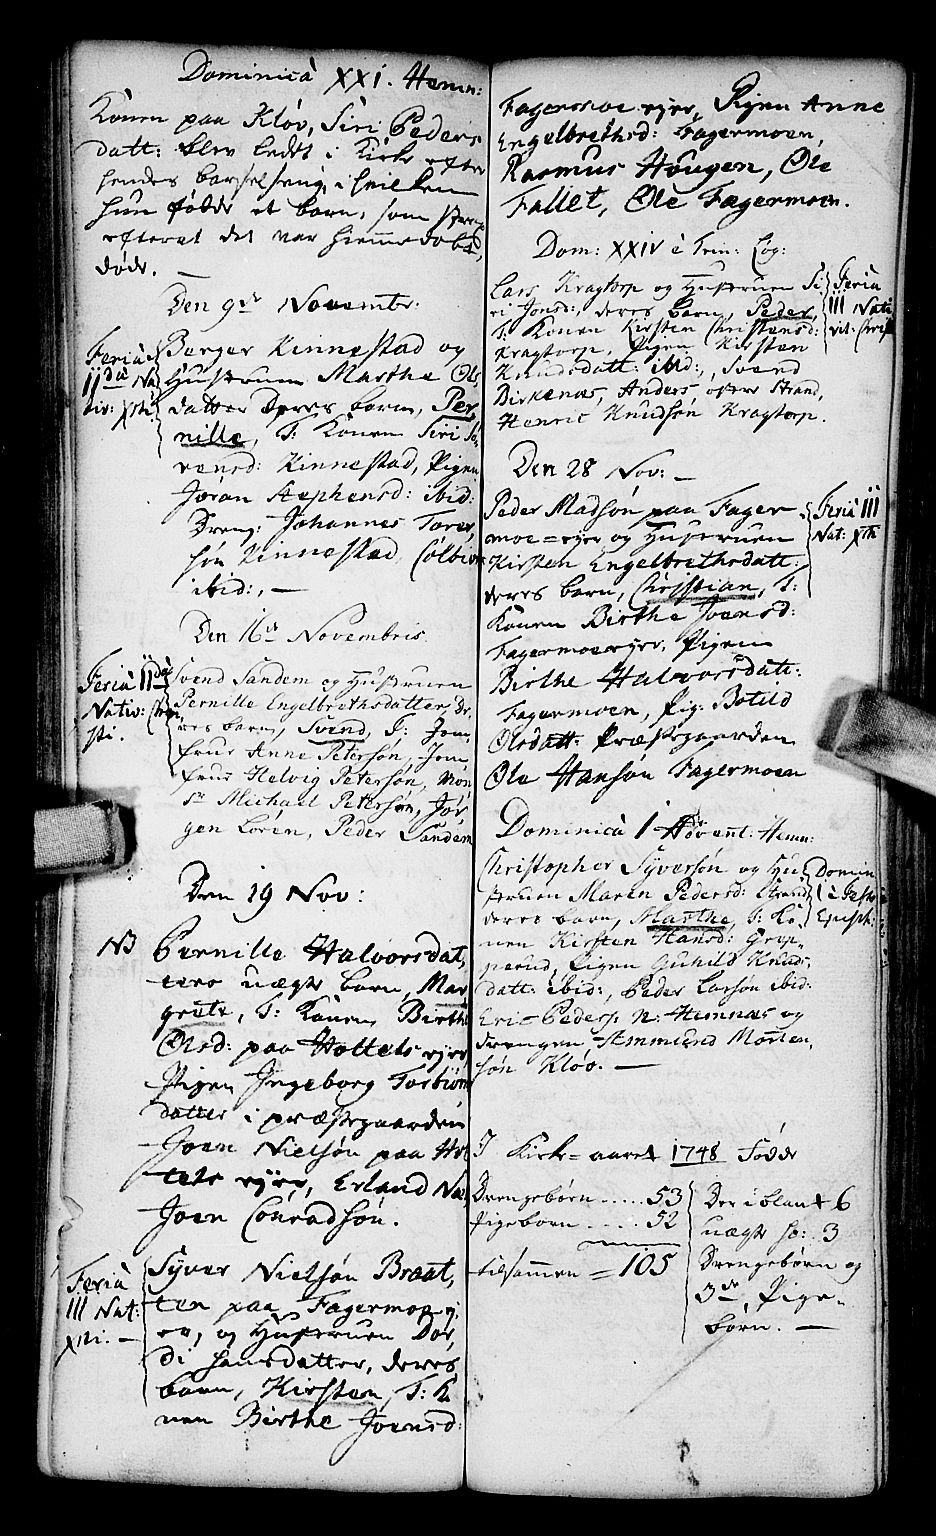 Dominicâ XXI. Hemn:
Konen paa Kløv, Siri Peders
datt: blev ledt i Kirke efter
hendes barselseng, i hvilken
hun fødde et barn, som strax
efterat det var hiemmedøbt,
døde. —
Den 9de Novembr:
Feriâ
IIdâ Na
tiv: Xsti
Berger Kinnestad og
Hustruen Marthe Ols
datter Deres barn, Per,
nille, T: Konen Siri Sø,
rensd: Kinnestad, Pigen
Jøran Stephensd: ibid:
Dreng: Johannes Torer,
søn Kinnestad, Colbiøn
ibid:, —
Den 16de Novembris.
Feriâ IIdâ
Nativ: Chri,
sti.
Svend Sandem og Hustruen
Pernille Engelbrethsdatter, De,
res barn, Svend, T: Jom,
frue Anne Petersøn, Jom
frue Helvig Petersøn, Mon
sr Michael Petersøn, Jør
gen Loren, Peder Sandem
Den 19 Nov:
NB
Pernille Halvorsdat,
ters uægte barn, Mar
grete, T: Konen Birthe
Olsd: paa Holtets ejer,
Pigen Ingeborg Torbiøns
datter i præstegaarden
Joen Nielsøn paa Hol
tets ejer, Erland Næs,
Joen Conradsøn.
Feriâ
III Nat:
Xsti. —
Syver Nielsøn Braat,
ten paa Fagermoe ej,
er, og Hustruen Dor,
di Hansdatter, deres
barn, Kirsten, T: Ko
nen Birthe Joensd:
Fagermoe ejer, Pigen Anne
Engelbrethsd: Fagermoen,
Rasmus Hougen, Ole
Fallet, Ole Fagermoen.
Dom: XXIV à Trin: Løg:
Lars Kragtorp og Hustruen Si
ri Jonsd:, deres barn, Peder,
T: Konen Kirsten Christensd:
Kragtorp, Pigen Kirsten
Knudsdatt: ibid:, Svend
Birkenæs, Anders øvre Strand,
Henric Knudsøn Kragtorp.
Feriâ
III Nati
vit: Christi
Den 28 Nov: —
Peder Madsøn paa Fager
moe=ejer og Hustruen
Kirsten Engelbrethsdatt:
deres barn, Christian, T:
Konen Birthe Joensd:
Fagermoe ejer, Pigen
Birthe Halvorsdatt:
Fagermoen, Pig: Botild
Olsdatt: Præstegaarden
Ole Hansøn Fagermoen
Feriâ III
Nat: Xsti
Dominicâ I Advent: Hemn:
Christopher Syversøn og Hu
struen Maren Pedersd: Strand
deres barn, Marthe, T: Ko
nen Kirsten Hansd: Grøp,
perud, Pigen Guhild Knuds
datt: ibid:, Peder Larsøn ibid:
Eric Peders: n: Hemnæs og
drengen Ammund Morten,
søn Kløv. —
Domin
I à Festo
Epiph:
I Kirke=aaret 1748 Fødde
Drengebørn ..... 53
Pigebørn ..... 52
tilsammen = 105
Der iblant 6
uægte sc: 3
Drengebørn og
3de Pige-
børn. —